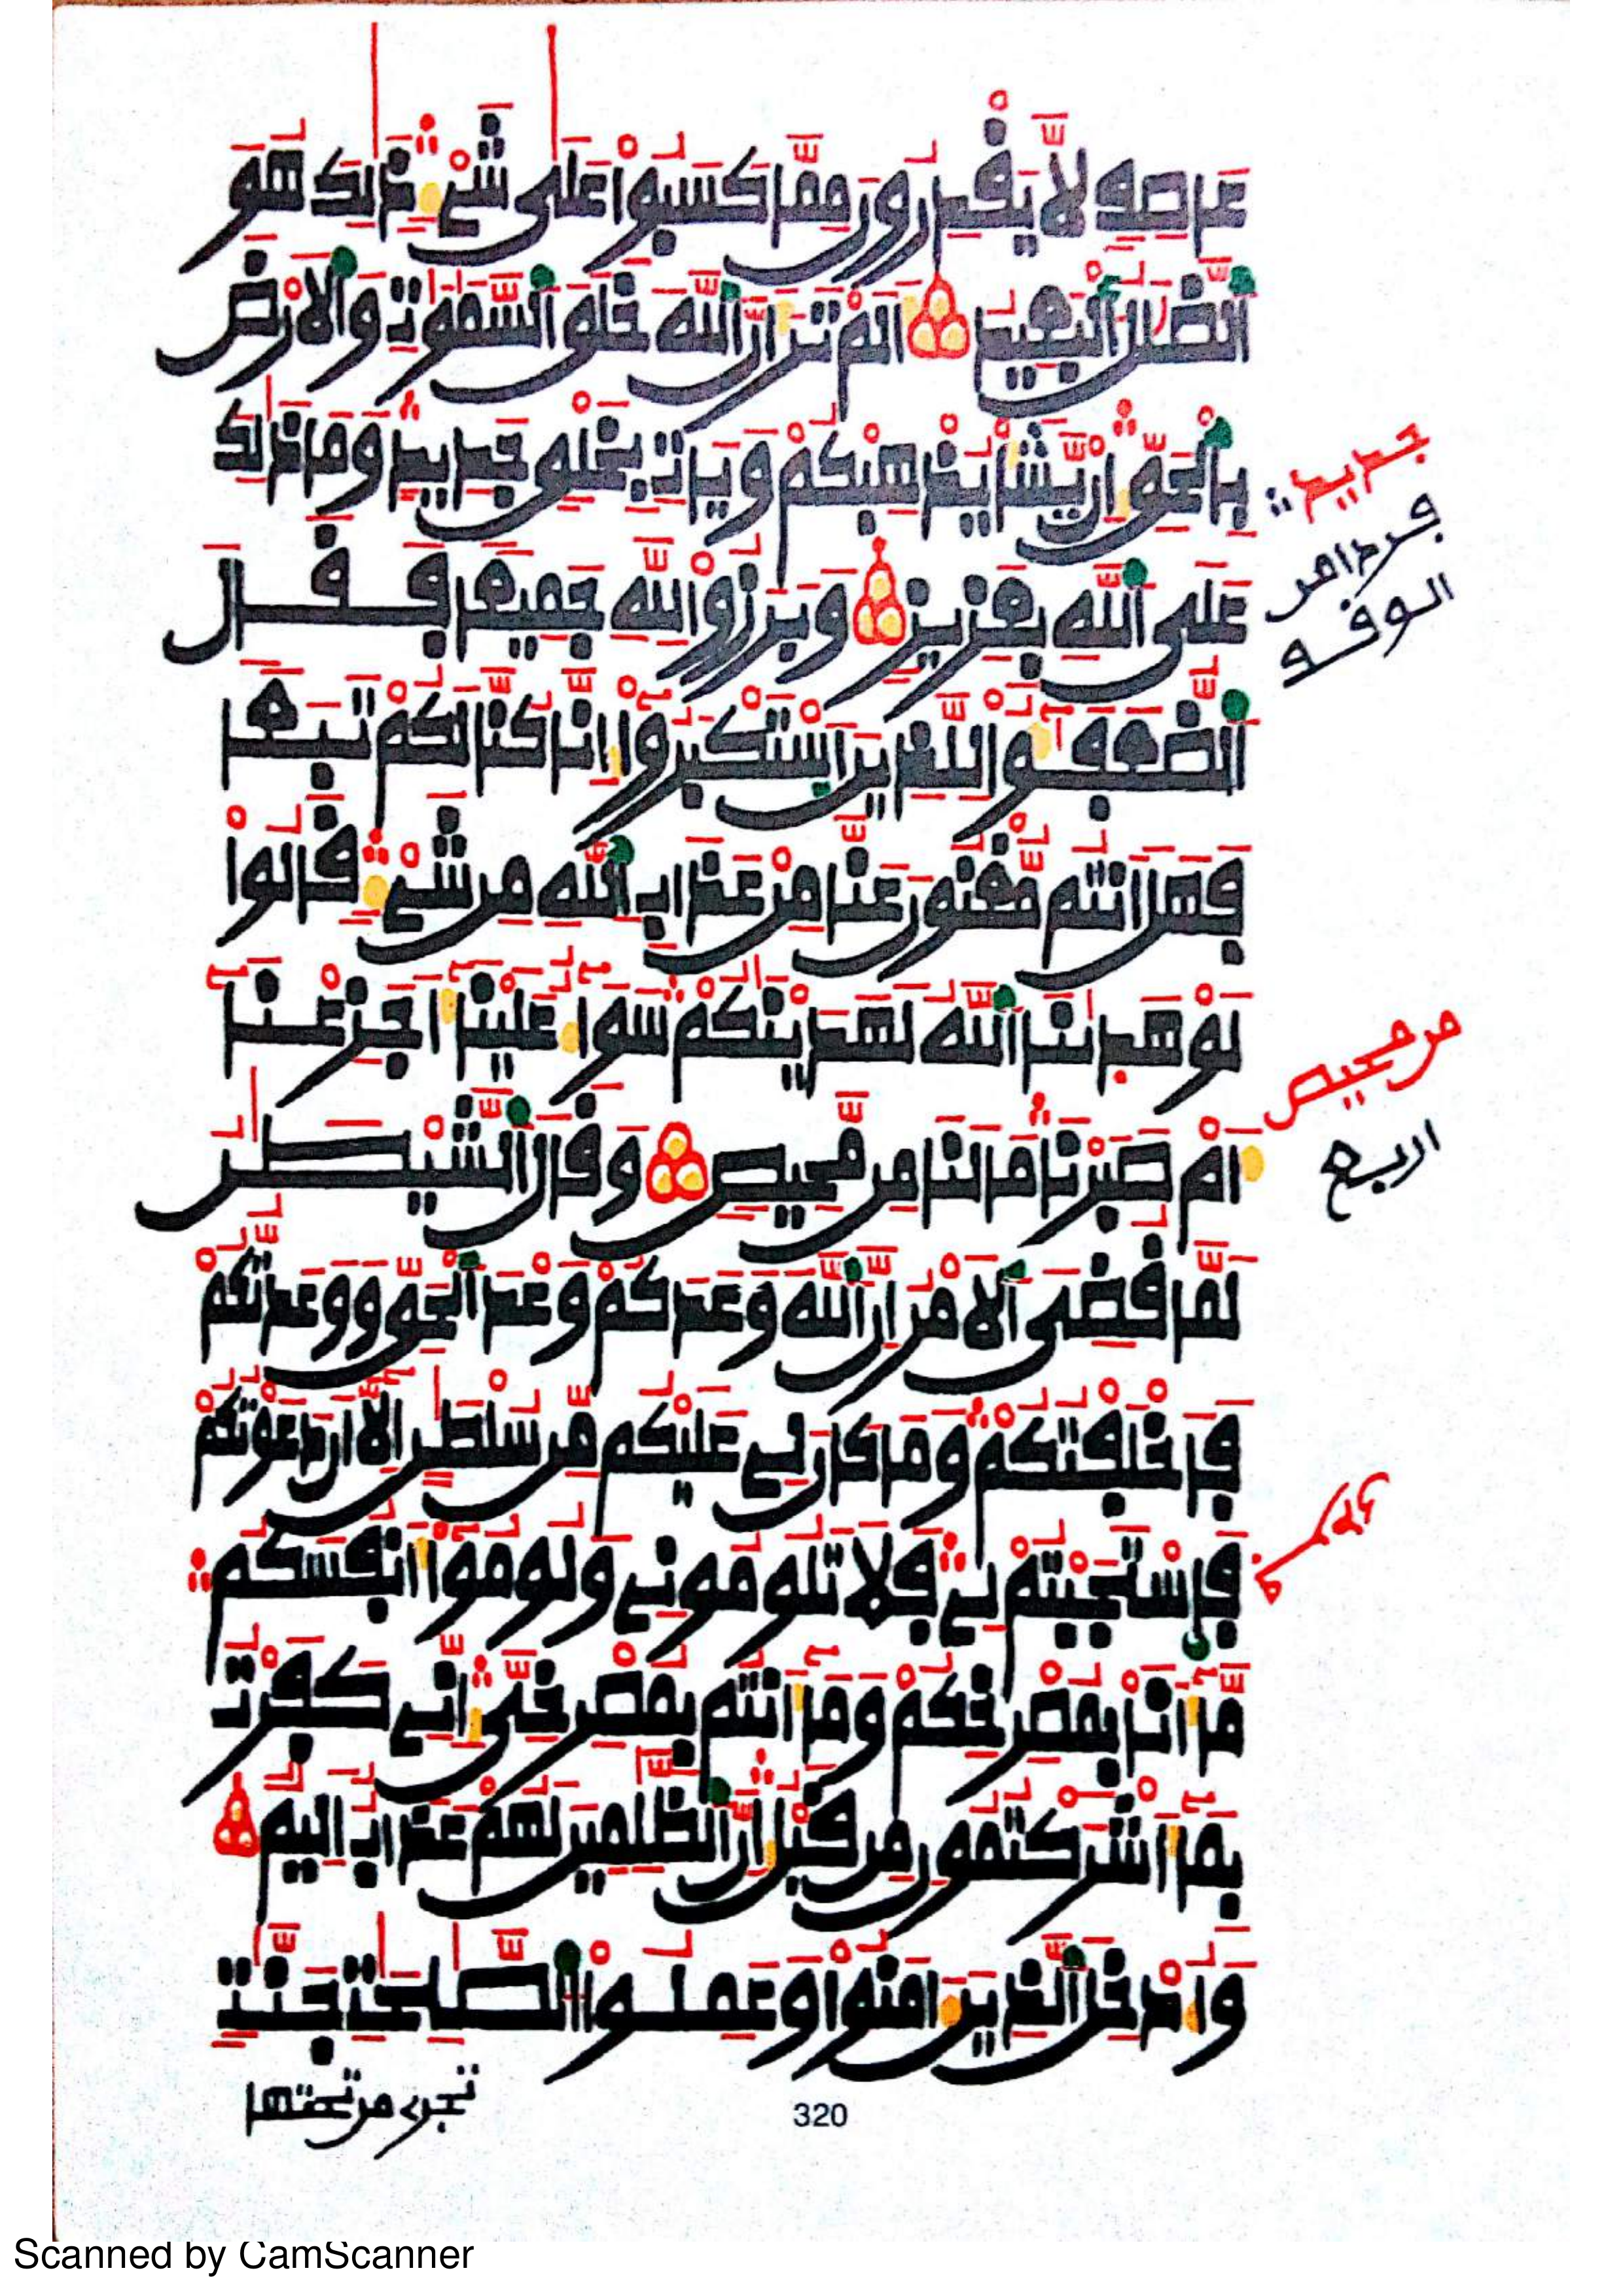 عَاصِفٍ لَّا يَقْدِرُونَ مِمَّا كَسَبُوا۟ عَلَىٰ شَےْءٖ ذَٰلِكَ هُوَ
اَ۬لضَّلَٰلُ اُ۬لْبَعِيدُ اَلَمْ تَرَ أَنَّ اَ۬للَّهَ خَلَقَ اَ۬لسَّمَٰوَٰتِ وَالَارْضَ
بِالْحَقِّ إِنْ يَّشَأْ يُذْهِبْكُمْ وَيَاتِ بِخَلْقٖ جَدِيدٖ وَمَا ذَٰلِكَ
جديد
عَلَى اَ۬للَّهِ بِعَزِيزٖ وَبَرَزُوا۟ لِلهِ جَمِيعاٗ فَقَالَ
اَ۬لضُّعَفَٰٓؤُا۟ لِلذِينَ اَ۪سْتَكْبَرُوٓا۟ إِنَّا كُنَّا لَكُمْ تَبَعاٗ
فَهَلَ اَنتُم مُّغْنُونَ عَنَّا مِنْ عَذَابِ اِ۬للَّهِ مِن شَےْءٖ قَالُوا۟
لَوْ هَدَىٰنَا اَ۬للَّهُ لَهَدَيْنَٰكُمْ سَوَآءٌ عَلَيْنَآ أَجَزِعْنَآ
من محيص
أَمْ صَبَرْنَا مَا لَنَا مِن مَّحِيصٖ وَقَالَ اَ۬لشَّيْطَٰنُ
اربع
لَمَّا قُضِيَ اَ۬لَامْرُ إِنَّ اَ۬للَّهَ وَعَدَكُمْ وَعْدَ اَ۬لْحَقِّ وَوَعَدتُّكُمْ
فَأَخْلَفْتُكُمْ وَمَا كَانَ لِے عَلَيْكُم مِّن سُلْطَٰنٍ إِلَّآ أَن دَعَوْتُكُمْ
فَاسْتَجَبْتُمْ لِے فَلَا تَلُومُونِے وَلُومُوٓا۟ أَنفُسَكُم
مَّآ أَنَا بِمُصْرِخِكُمْ وَمَآ أَنتُم بِمُصْرِخِيَّ إِنِّے كَفَرْتُ
بِمَآ أَشْرَكْتُمُونِ مِن قَبْلُ إِنَّ اَ۬لظَّٰلِمِينَ لَهُمْ عَذَابٌ اَلِيمٞ
وَأُدْخِلَ اَ۬لذِينَ ءَامَنُوا۟ وَعَمِلُوا۟ اُ۬لصَّٰلِحَٰتِ جَنَّٰتٖ
تجرے من تحتها
320
Scanned by CamScanner